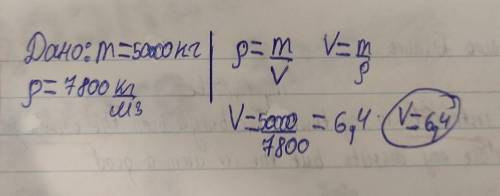 Дано: m=50000кг
ρ=7800 кг/м3
ρ=m/V V=m/ρ
V=50000/7800=6,4 V=6,4